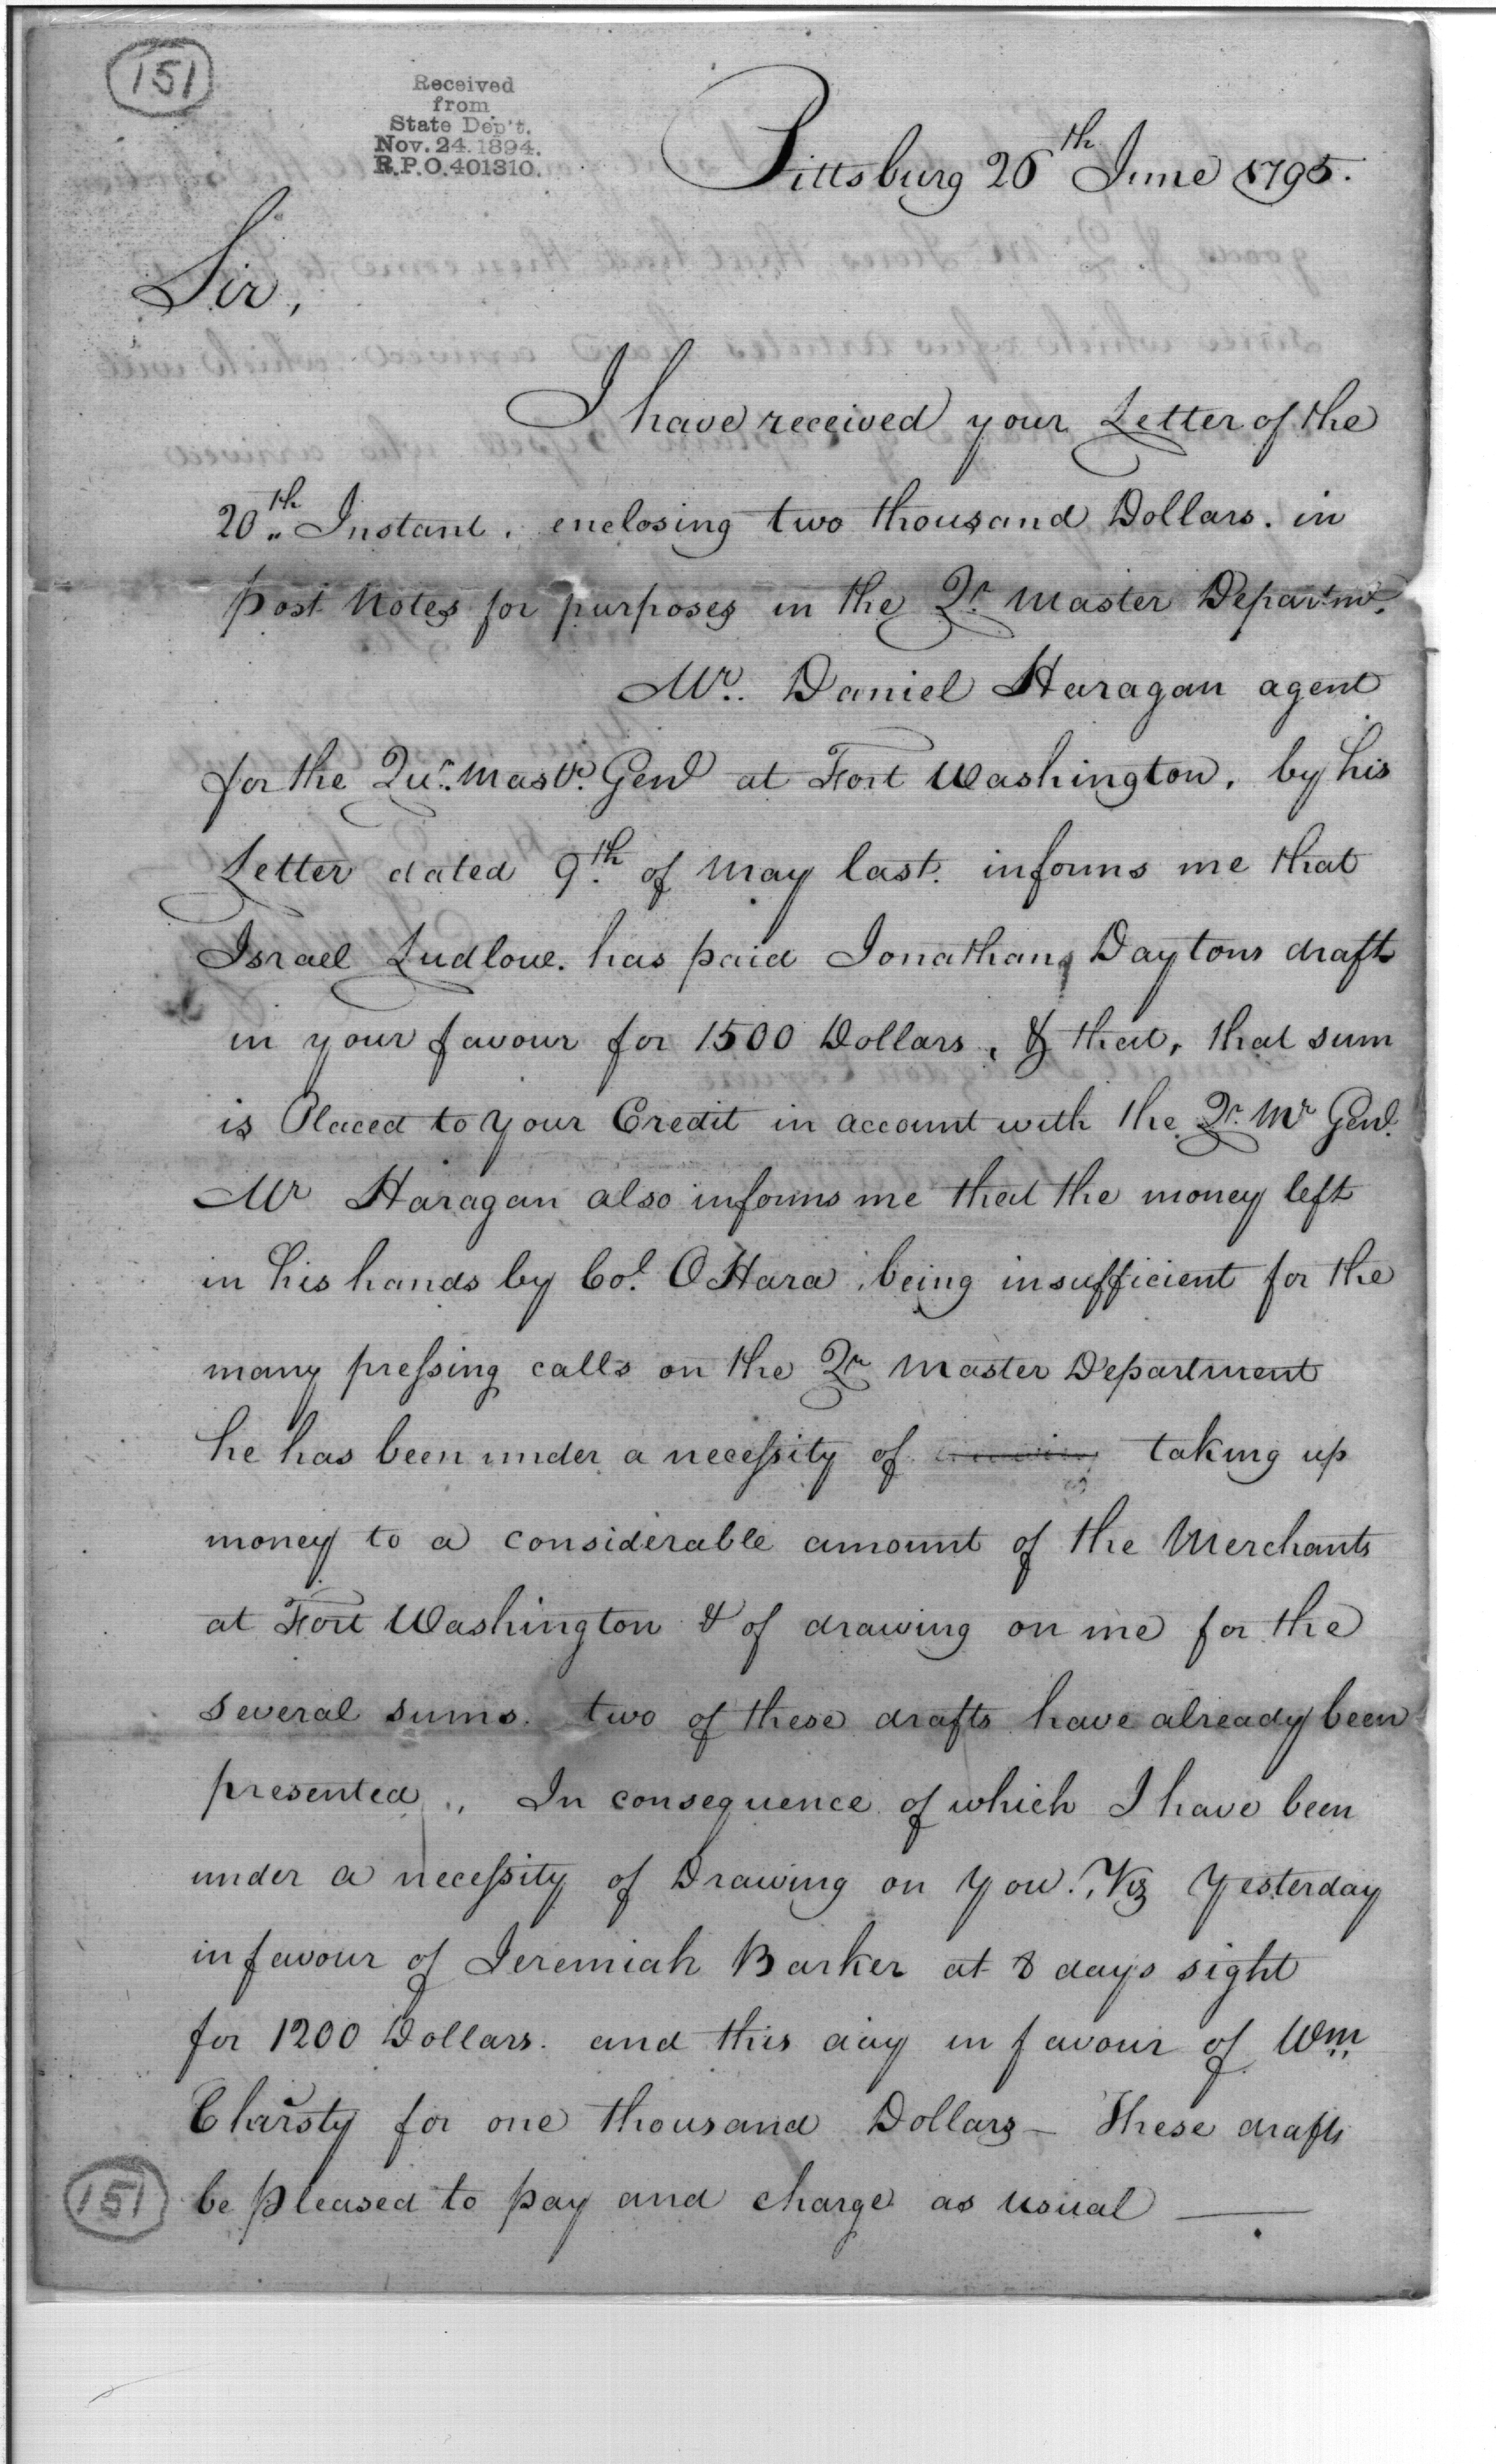 151
Received
from
State Dep't.
Nov. 24. 1894.
R.P.O. 401310.
Pittsburg 26th June 1795.
Sir,
I have received your Letter of the
20th Instant. enclosing two thousand Dollars. in
post Notes for purposes in the Qr Master Departmt.
Mr. Daniel Haragan agent
for the Qur. Mastr. Genl at Fort Washington, by his
Letter dated 9th of May last. informs me that
Israel Ludlow. has paid Jonathan Daytons draft
in your favour for 1500 Dollars, & that, that sum
is Placed to your Credit in account with the Qr. Mr Genl.
Mr Haragan also informs me that the money left
in his hands by Col. OHara being insufficient for the
many pressing calls on the Qr Master Department
he has been under a necessity of taking up
money to a considerable amount of the Merchants
at Fort Washington & of drawing on me for the
several sums. two of these drafts have already been
presented., In consequence of which I have been
under a necessity of Drawing on you. Viz Yesterday
in favour of Jeremiah Barker at 8 days sight
for 1200 Dollars. and this day in favour of Wm
for one thousand Dollars – These drafts
be pleased to pay and charge as usual —
151